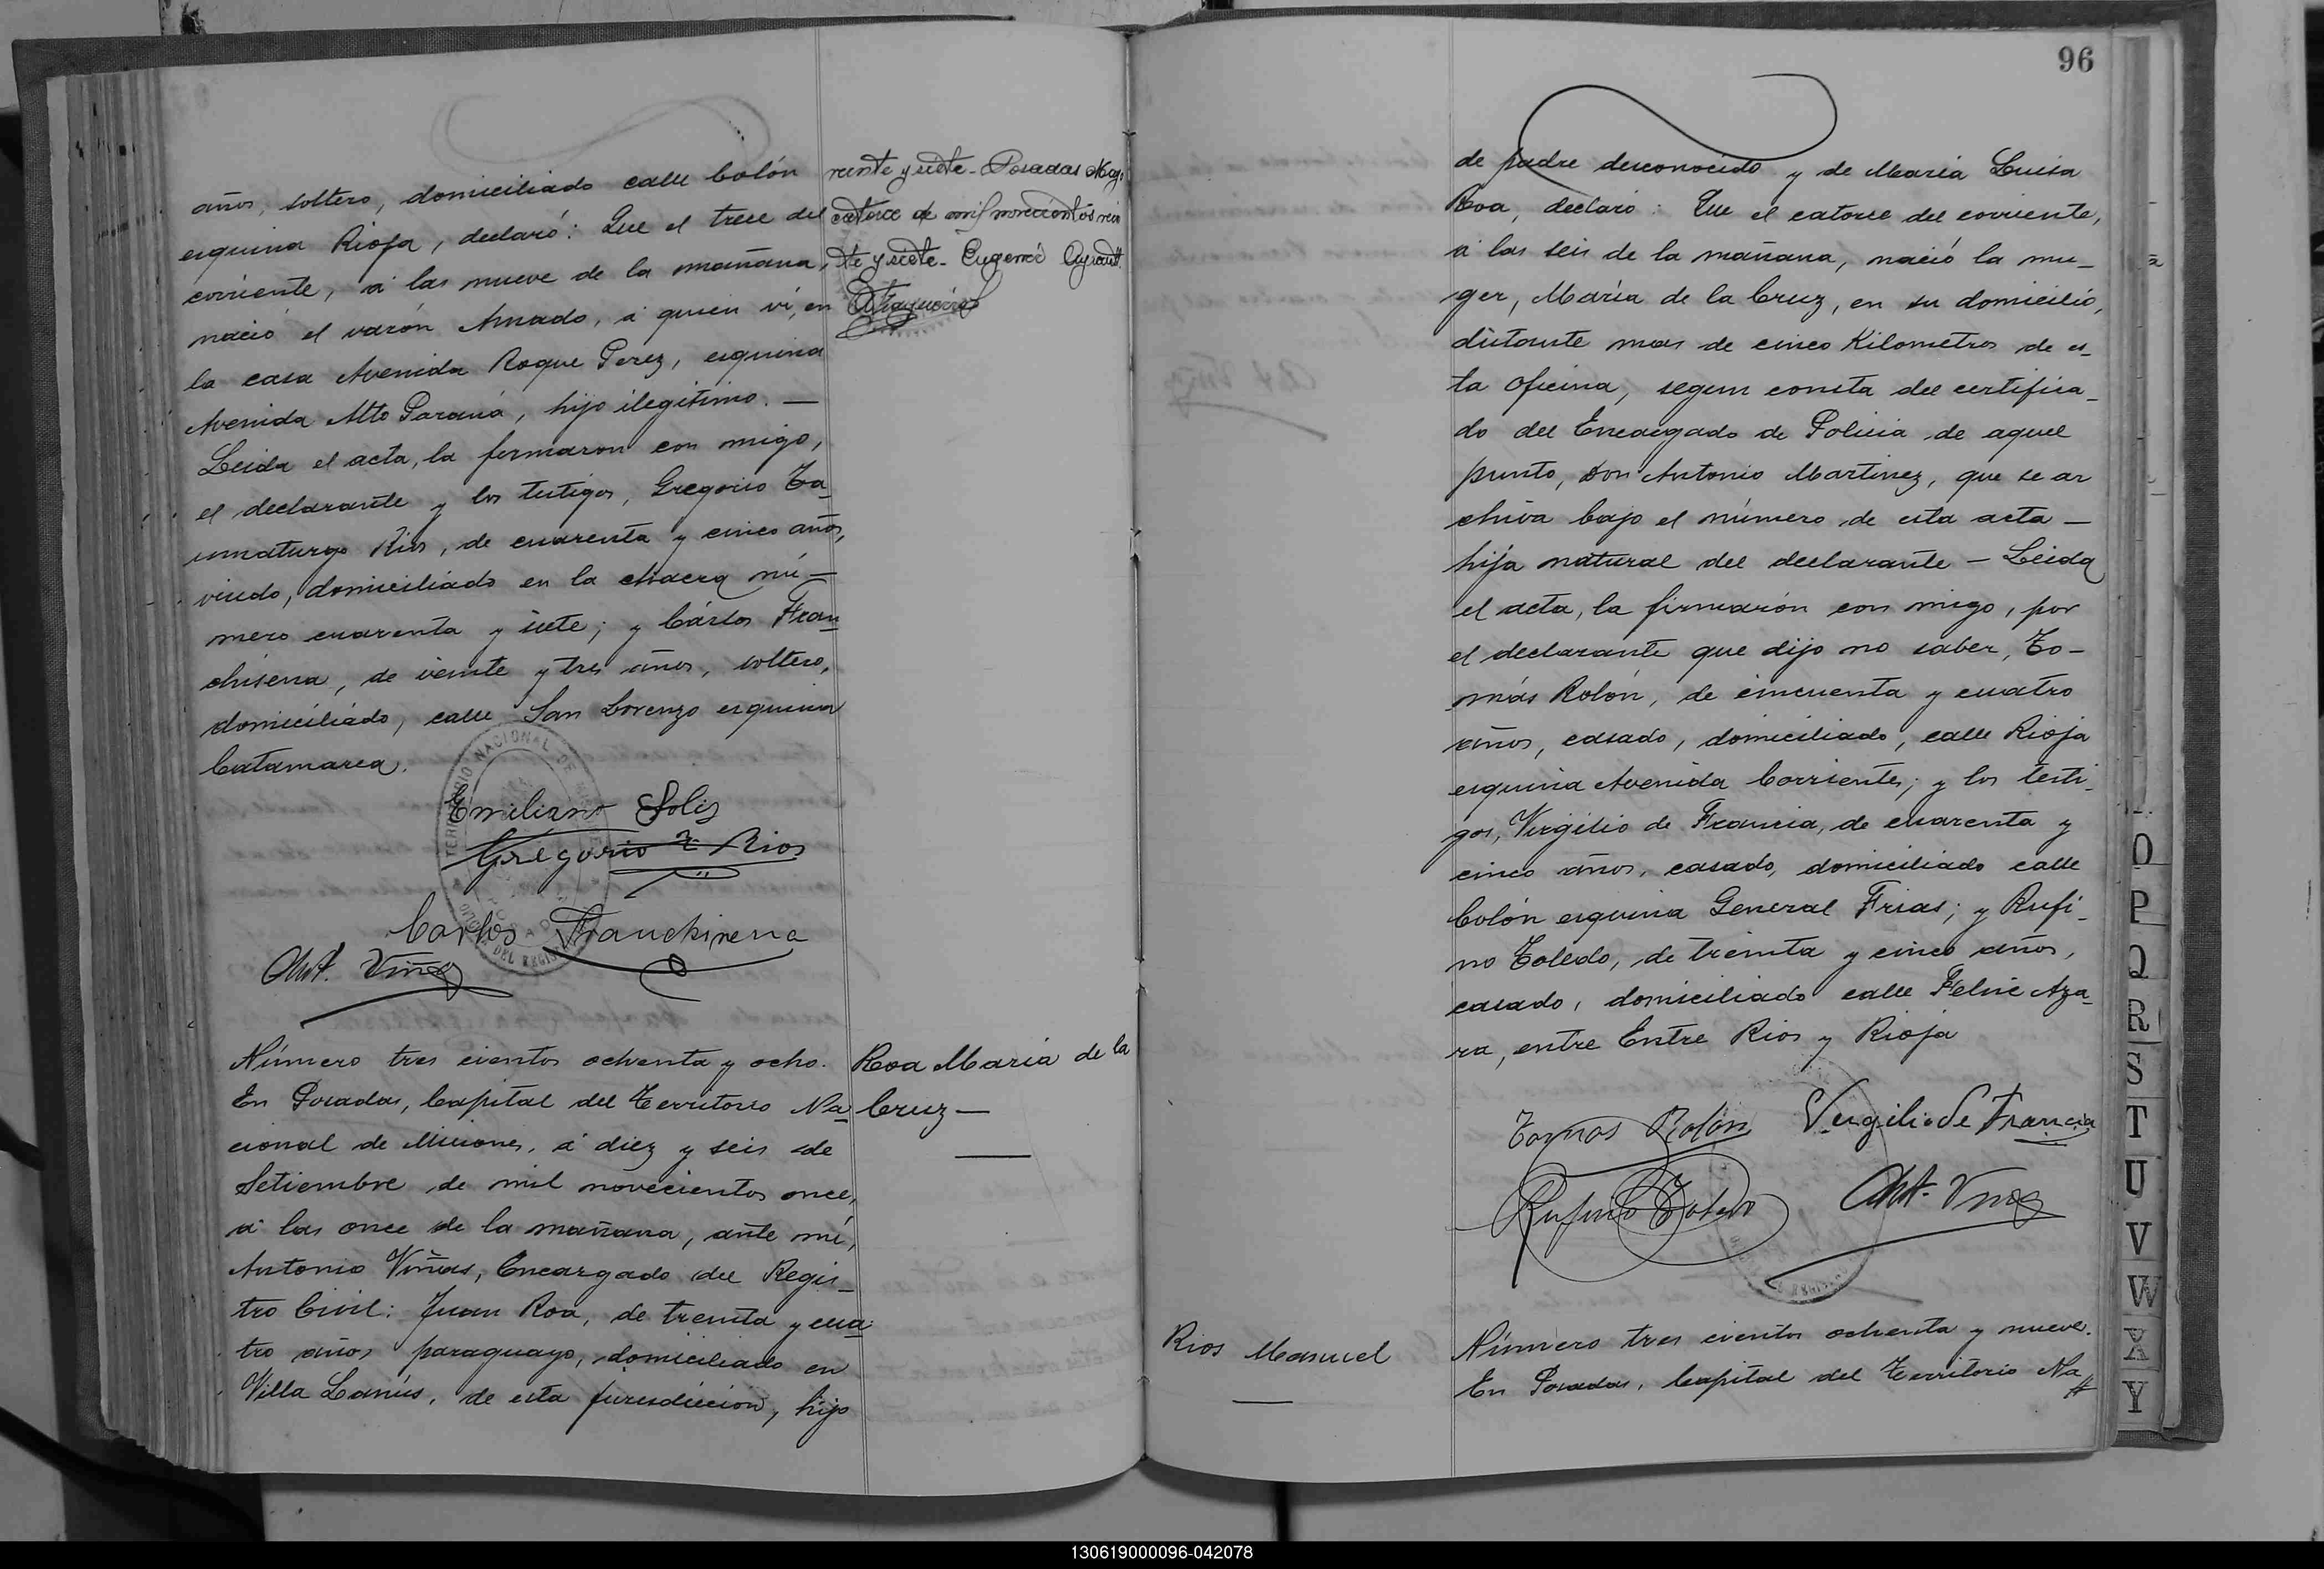 años, soltero, domiciliado calle Colón
esquina Rioja, declaró: Que el trece del
corriente, á las nueve de la mañana,
nació el varón Amado, á quien ví, en
la casa Avenida Roque Perez, esquina
Avenida Alto Paraná, hijo ilegitimo. —
Leida el acta, la firmaron con migo,
el declarante y los testigos, Gregorio Ta-
umaturgo Rios, de cuarenta y cinco años,
viudo, domiciliado en la chacra nú-
mero cuarenta y siete; y Cárlos Fran-
chisena, de veinte y tres años, soltero,
domiciliado, calle San Lorenzo esquina
Catamarca.
Emiliano Solis
Gregorio T. Rios
Carlos Franchisena
Ant. Viñas
veinte y siete - Posadas
catorce de mil novecientos vein
te y siete - Eugenio
Número tres cientos ochenta y ocho.
En Posadas, Capital del Territorio Na-
cional de Misiones, á diez y seis de
Setiembre de mil novecientos once,
á las once de la mañana, ante mí,
Antonio Viñas, Encargado del Regis-
tro Civil: Juan Roa, de treinta y cua-
tro años paraguayo, domiciliado en
Villa Lanús, de esta jurisdicción, hijo
Roa Maria de la
Cruz —
96
de padre desconocido y de Maria Luisa
Roa, declaró: Que el catorce del corriente,
á las seis de la mañana, nació la mu-
ger, María de la Cruz, en su domicilio,
distante mas de cinco Kilometros de es-
ta oficina, segun consta del certifica-
do del Encargado de Policia de aquel
punto, Don Antonio Martinez, que se ar
chiva bajo el número de esta acta —
hija natural del declarante — Leida
el acta, la firmarón con migo, por
el declarante que dijo no saber, To-
más Rolón, de cincuenta y cuatro
años, casado, domiciliado, calle Rioja
esquina Avenida Corrientes; y los testi-
gos, Virgilio de Francia, de cuarenta y
cinco años, casado, domiciliado calle
Colón esquina General Frias; y Rufi-
no Toledo, de treinta y cinco años,
casado, domiciliado calle Felix Aza-
ra, entre Entre Rios y Rioja
Tomas Rolón Virgilio de Francia
Rufino Toledo Ant. Viñas
Rios Manuel
Número tres cientos ochenta y nueve.
En Posadas, Capital del Territorio Na
O
P
Q
R
S
T
U
V
W
X
Y
130619000096-042078